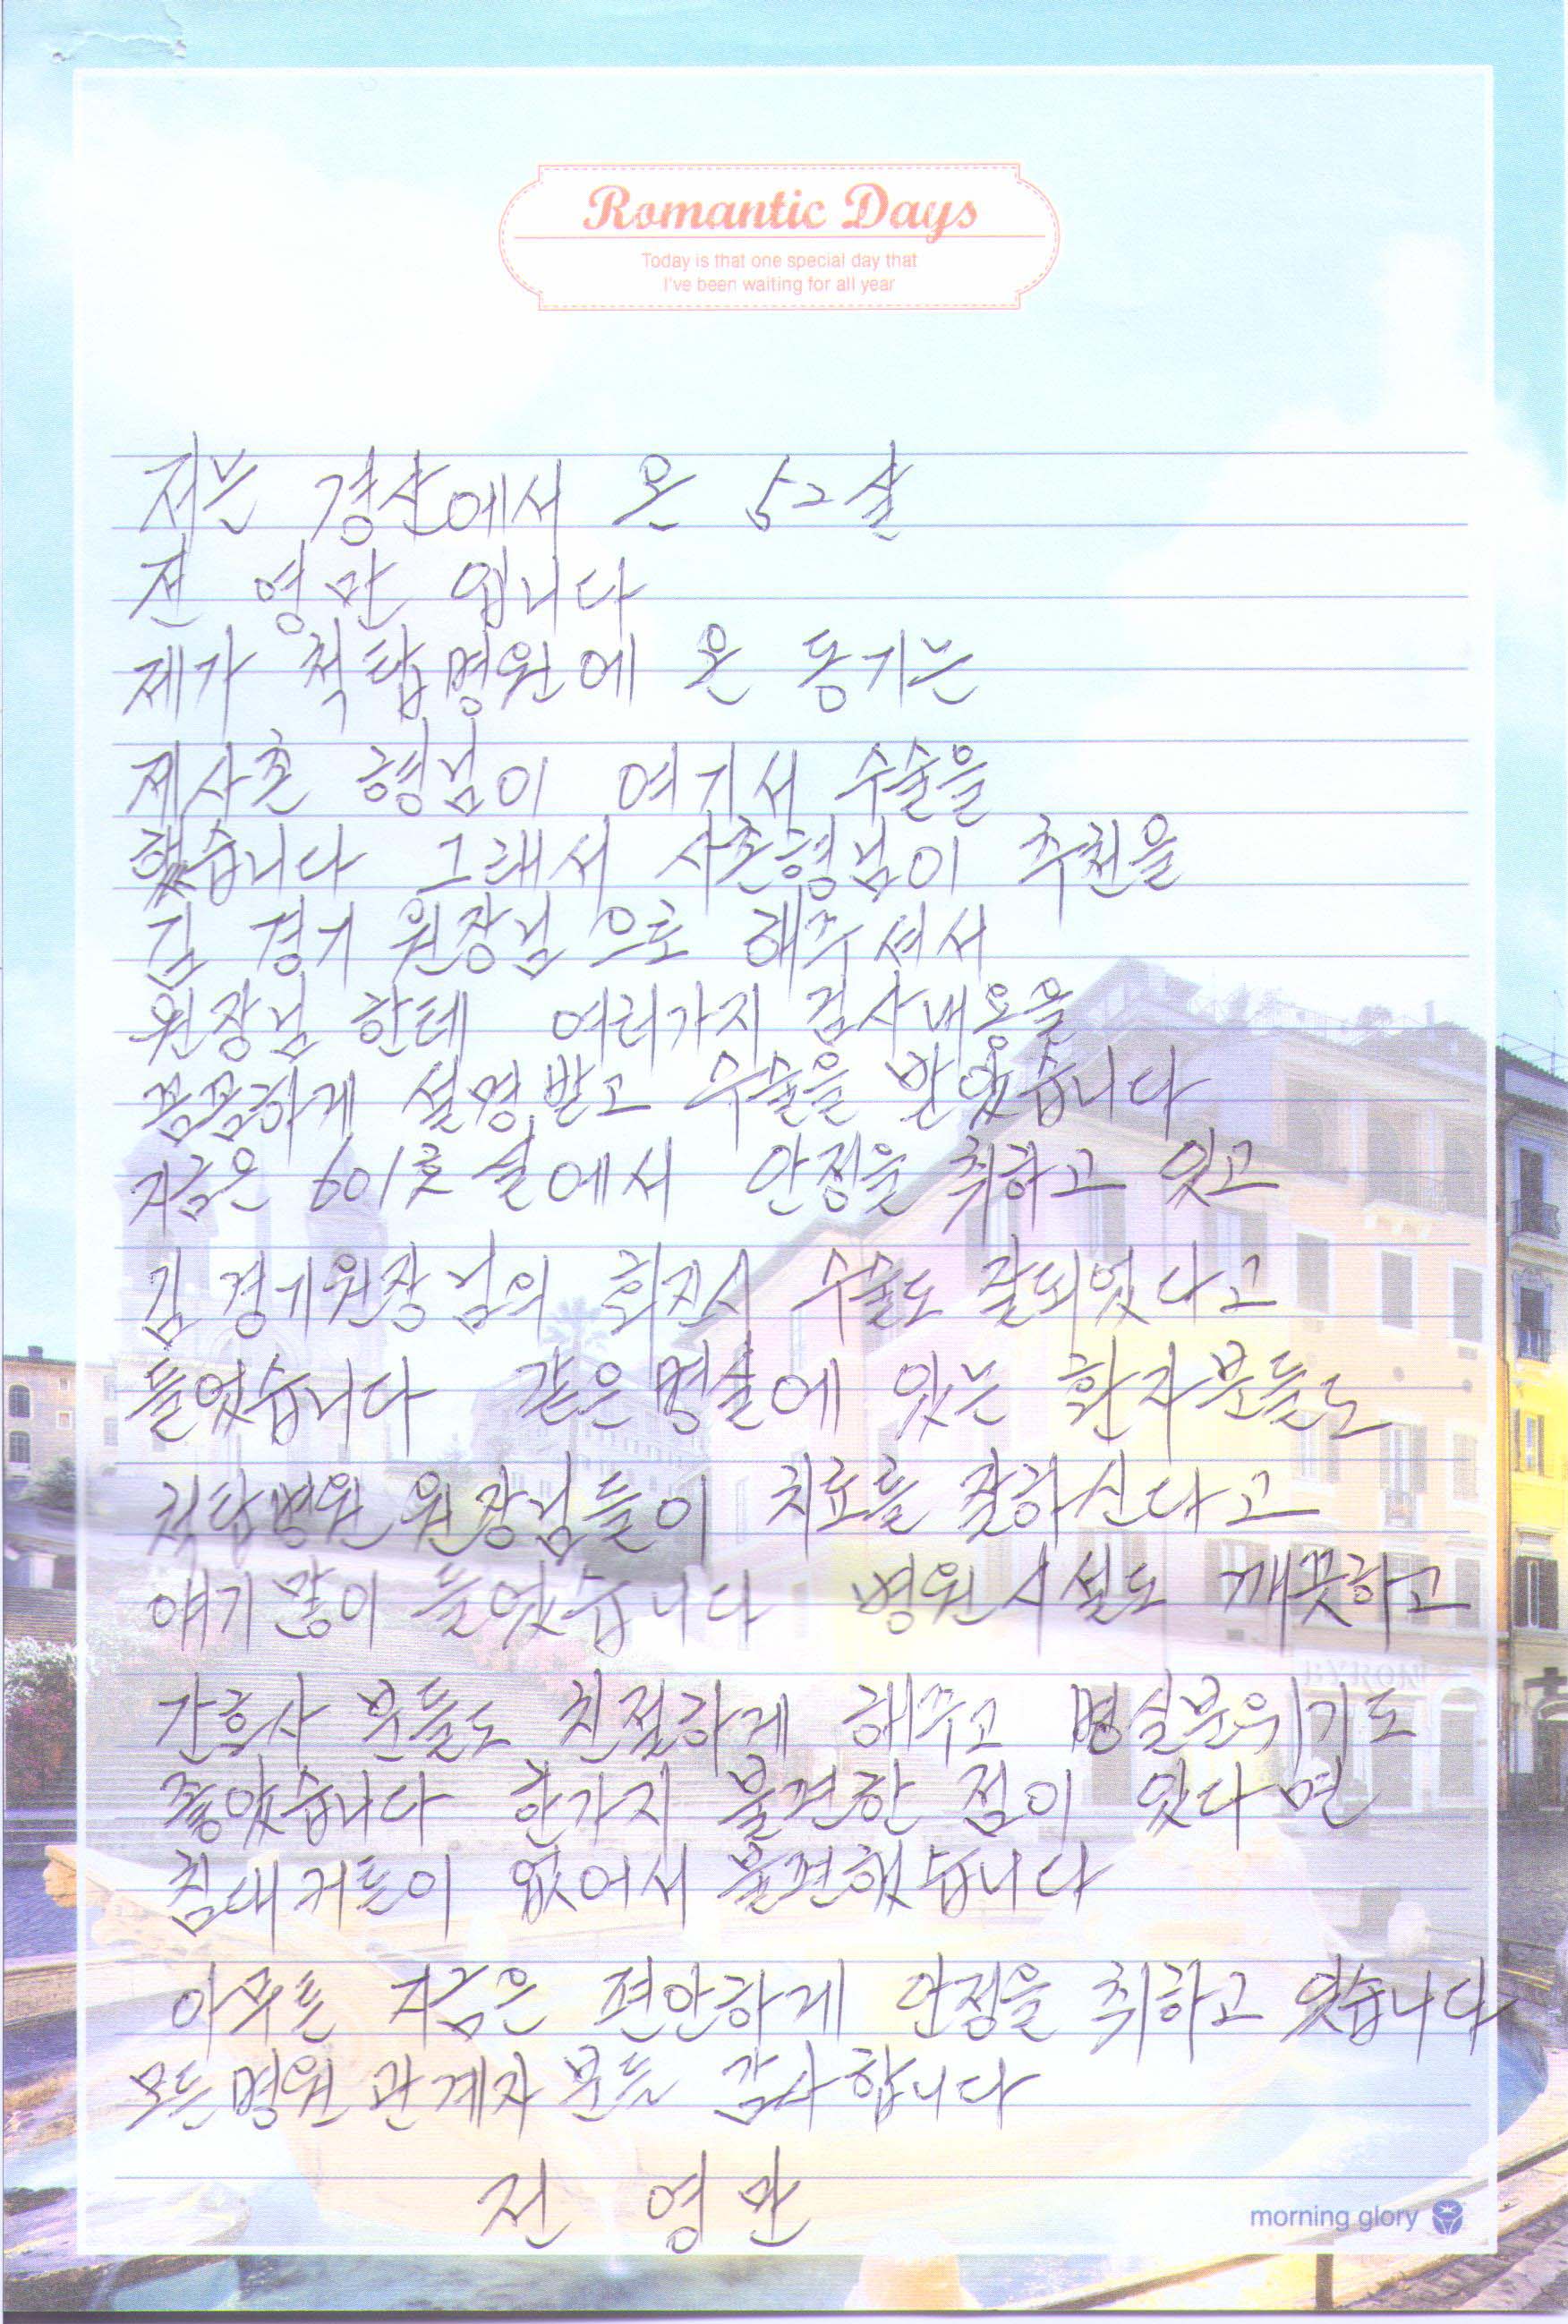 Romantic Days
Today is that one special day that
I've been waiting for all year
저는 경산에서 온 52살
전 영만 입니다
제가 척탑병원에 온 동기는
제사촌 형님이 여기서 수술을
했습니다 그래서 사촌형님이 추천을
김 경기 원장님 으로 해주셔서
원장님 한테 여러가지 검사내용을
꼼꼼하게 설명받고 수술을 받았습니다
지금은 601호실에서 안정을 취하고 있고
김 경기원장님의 회진시 수술도 잘되었다고
들었습니다 같은병실에 있는 환자분들도
척탑병원 원장님들이 치료를 잘하신다고
얘기많이 들었습니다 병원시설도 깨끗하고
간호사 분들도 친절하게 해주고 병실분위기도
좋았습니다 한가지 불편한 점이 있다면
침대커튼이 없어서 불편했습니다
아무튼 지금은 편안하게 안정을 취하고 있습니다
모든병원 관계자 분들 감사합니다
전 영만
morning glory